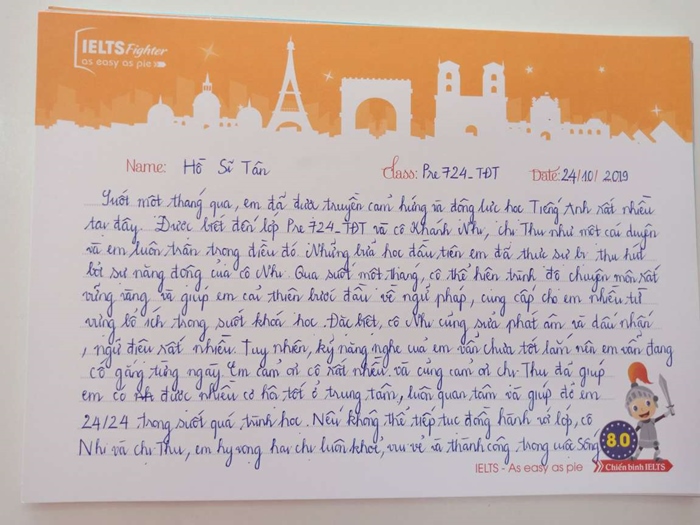 IELTS Fighter
as easy as pie
Name: Hồ Sĩ Tân Class: Pre 724_TĐT Date: 24/10/2019
Suốt một tháng qua, em đã được truyền cảm hứng và động lực học Tiếng Anh rất nhiều
tại đây. Được biết đến lớp Pre 724_TĐT và cô Khánh Nhi, chị Thư như một cái duyên
và em luôn trân trọng điều đó. Những buổi học đầu tiên em đã thực sự bị thu hút
bởi sự năng động của cô Nhi. Qua suốt một tháng, cô thể hiện trình độ chuyên môn rất
vững vàng và giúp em cải thiện bước đầu về ngữ pháp, cung cấp cho em nhiều từ
vựng bổ ích trong suốt khoá học. Đặc biệt, cô Nhi cũng sửa phát âm và dấu nhấn
, ngữ điệu rất nhiều. Tuy nhiên, kỹ năng nghe của em vẫn chưa tốt lắm nên em vẫn đang
cố gắng từng ngày. Em cảm ơn cô rất nhiều và cũng cảm ơn chị Thư đã giúp
em có được nhiều cơ hội tốt ở trung tâm, luôn quan tâm và giúp đỡ em
24/24 trong suốt quá trình học. Nếu không thể tiếp tục đồng hành với lớp, cô
Nhi và chị Thư, em hy vọng hai chị luôn khoẻ, vui vẻ và thành công trong cuộc sống
8.0
IELTS - As easy as pie Chiến binh IELTS